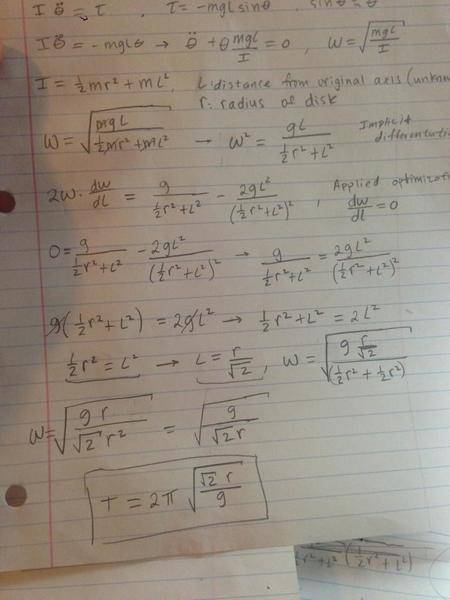 I θ̈ = τ , τ = -mgl sinθ , sinθ ≈ θ
I θ̈ = -mgLθ → θ̈ + θ mgL/I = 0 , ω = √(mgL/I)
I = ½mr² + mL² , L: distance from original axis
r: radius of disk
ω = √(mgL/(½mr² + mL²)) → ω² = gL/(½r² + L²) Implicit
2ω · dω/dL = g/(½r² + L²) - 2gL²/(½r² + L²)² , Applied
dω/dL = 0
0 = g/(½r² + L²) - 2gL²/(½r² + L²)² → g/(½r² + L²) = 2gL²/(½r² + L²)²
g(½r² + L²) = 2gL² → ½r² + L² = 2L²
½r² = L² → L = r/√2 , ω = √(g r/√2/(½r² + ½r²))
ω = √(gr/(√2 r²)) = √(g/(√2r))
T = 2π √(√2 r/g)
½r² + L² (½r² + L²)